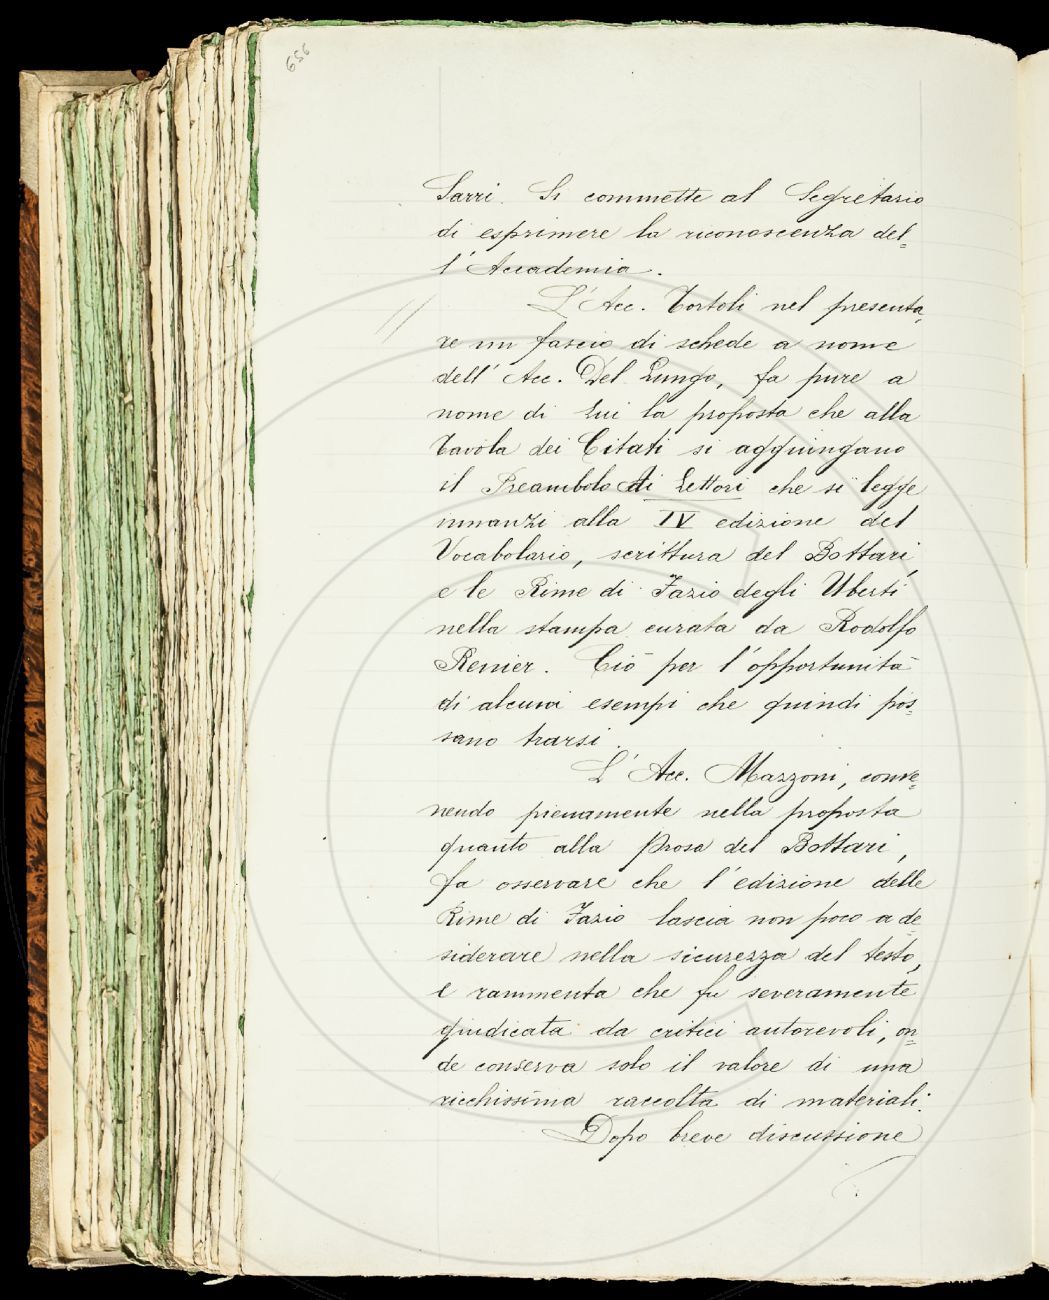 656
Sarri. Si commette al Segretario
di esprimere la riconoscenza del=
l'Accademia.
L'Acc. Tortoli nel presenta,
re un fascio di schede a nome
dell'Acc. Del Lungo, fa pure a
nome di lui la proposta che alla
Tavola dei Citati si aggiungano
il Preambolo Ai Lettori che si legge
innanzi alla IV edizione del
Vocabolario, scrittura del Bottari,
e le Rime di Fazio degli Uberti
nella stampa curata da Rodolfo
Renier. Ciò per l'opportunità
di alcuni esempi che quindi pos=
sano trarsi.
L'Acc. Mazzoni, conve=
nendo pienamente nella proposta
quanto alla Prosa del Bottari,
fa osservare che l'edizione delle
Rime di Fazio lascia non poco a de=
siderare nella sicurezza del testo,
e rammenta che fu severamente
giudicata da critici autorevoli, on=
de conserva solo il valore di una
ricchissima raccolta di materiali.
Dopo breve discussione